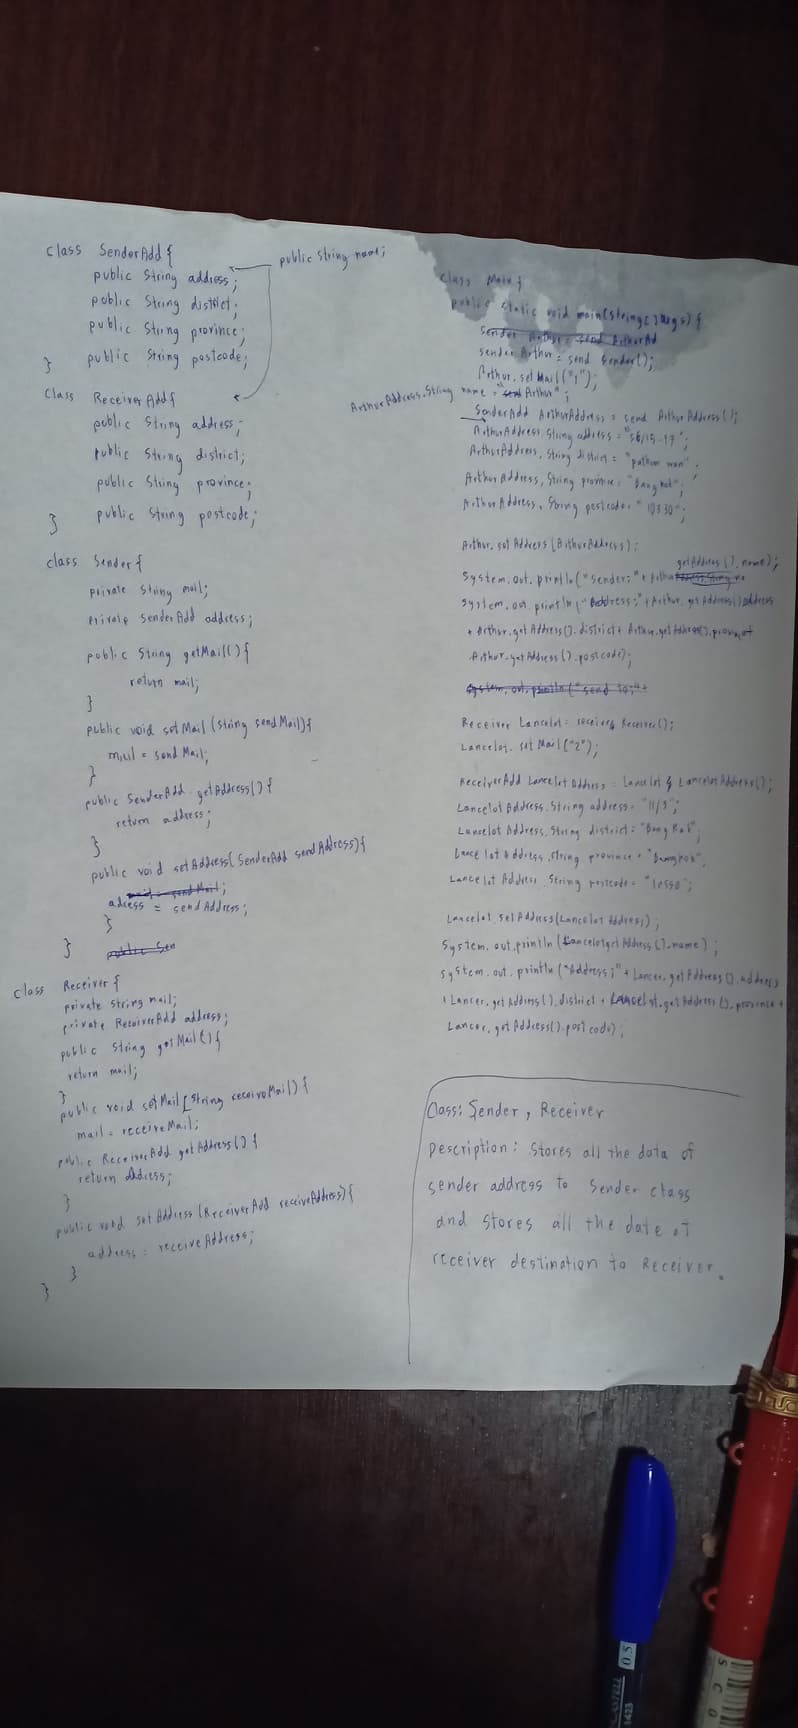 class SenderAdd {
public String name;
public String address;
public String district;
public String province;
} public String postcode;
Class ReceiverAdd {
public String address;
public String district;
public String province;
} public String postcode;
class Sender {
private String mail;
private SenderAdd address;
public String getMail() {
return mail;
}
public void setMail (String sendMail) {
mail = sendMail;
}
public SenderAdd getAddress() {
return address;
}
public void setAddress (SenderAdd sendAddress) {
adress = sendAddress;
}
}
class Receiver {
private String mail;
private ReceiverAdd address;
public String getMail() {
return mail;
}
public void setMail [String receiveMail) {
mail = receiveMail;
public ReceiverAdd getAddress() {
return address;
}
public void setAddress (ReceiverAdd receiveAddress) {
address = receiveAddress;
}
}
class Main {
public static void main(String[] args) {
sender Arthur = send Sender();
Arthur.setMail("1");
ArthurAddress.String name = "Arthur";
SenderAdd ArthurAddress = send ArthurAddress();
ArthurAddress.String address = "56/15-17";
ArthurAddress.String district = "pathum wan";
ArthurAddress, String province = "Bangkok";
ArthurAddress, String postcode = "10330";
Arthur.setAddress (ArthurAddress);
getAddress().name);
System.out.println("Sender:"+
System.out.println("Address:"+Arthur.getAddress().address
+ Arthur.getAddress().district + Arthur.getAddress().province+
Arthur.getAddress().postcode);
Receiver Lancelot = Receiver();
Lancelot.setMail("2");
ReceiverAdd LancelotAddress = LancelotAddress();
LancelotAddress.String address = "11/3";
LancelotAddress.String district = "Bang Rak";
LancelotAddress.String province = "Bangkok",
LancelotAddress.String postcode =
Lancelot.setAddress(LancelotAddress);
System.out.println(Lancelotget Address().name);
System.out.println("Address;"+ Lancer.getAddress().address
+ Lancer.getAddress().district + Lancelot.getAddress().province +
Lancer.getAddress().postcode);
Class: Sender, Receiver
Description: Stores all the data of
sender address to Sender class
and stores all the date of
receiver destination to Receiver.
0.5
1423